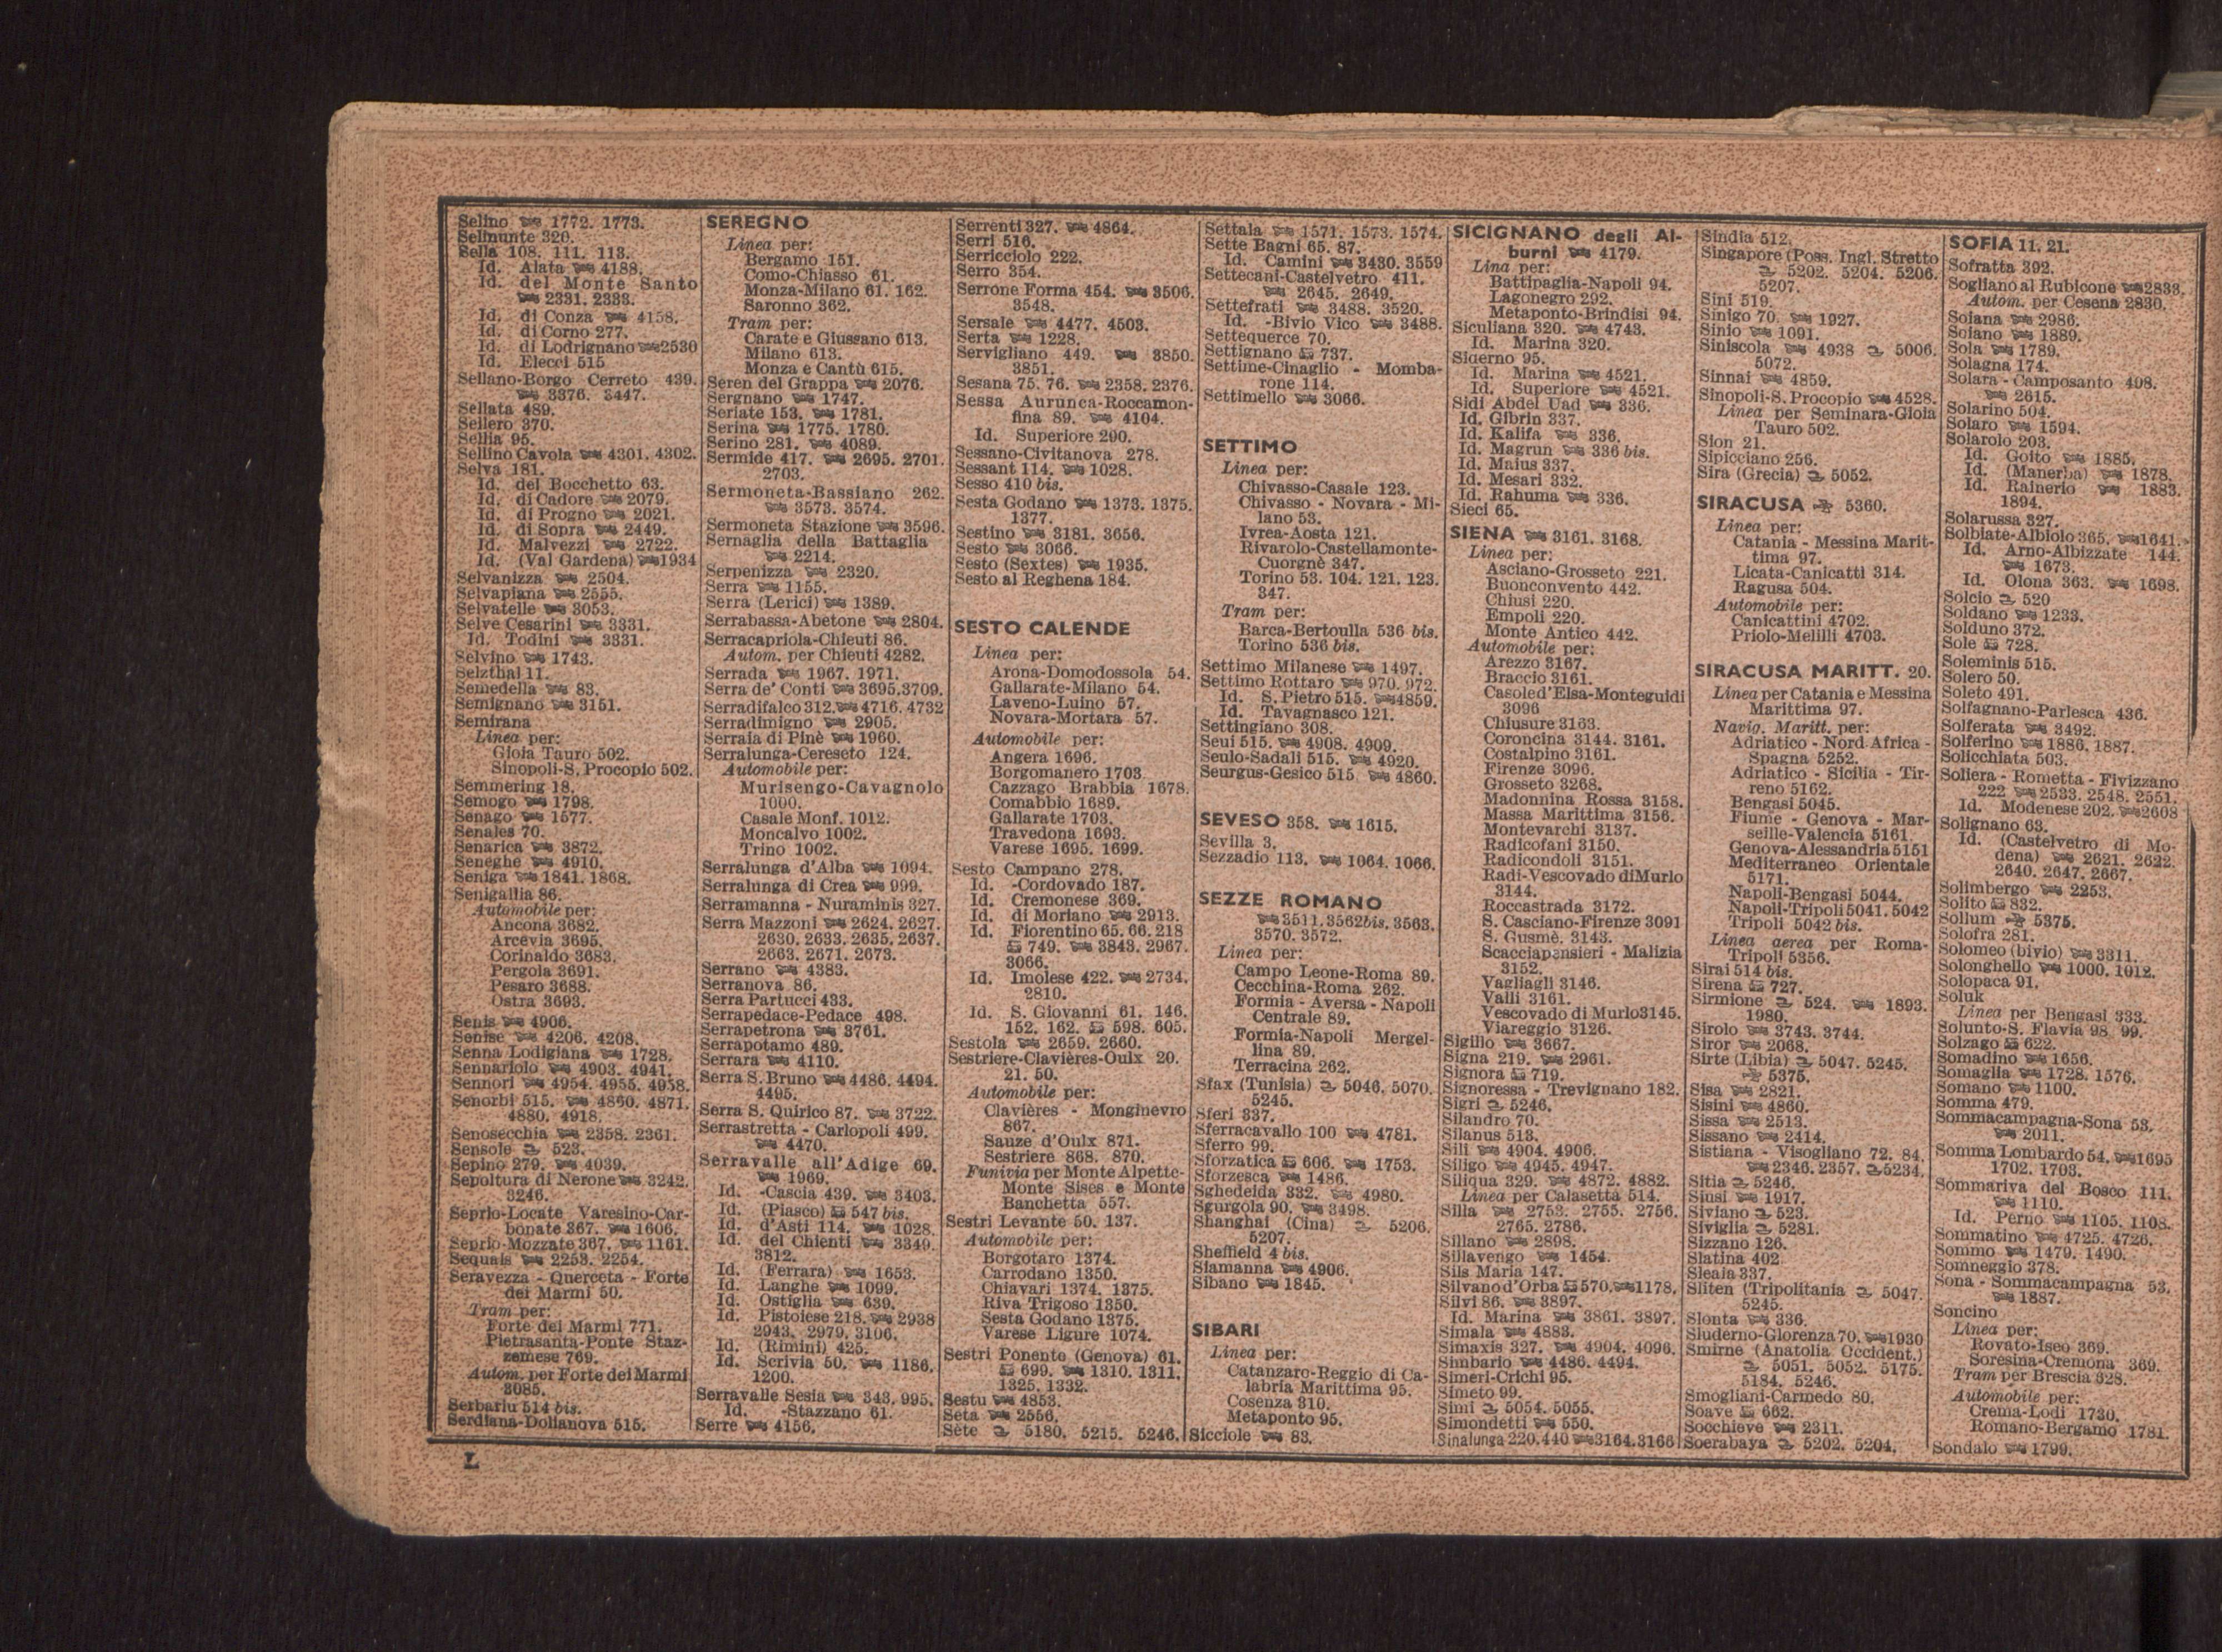 Selino 1772. 1773.
Selinunte 320.
Sella 108. 111. 113.
Id. Alata 4188.
Id. del Monte Santo
2331. 2333.
Id. di Conza 4158.
Id. di Corno 277.
Id. di Lodrignano 2530
Id. Elecci 515
Sellano-Borgo Cerreto 439.
3376. 3447.
Sellata 489.
Sellero 370.
Sellia 95.
Sellino Cavola 4301. 4302.
Selva 181.
Id. del Bocchetto 63.
Id. di Cadore 2079.
Id. di Progno 2021.
Id. di Sopra 2449.
Id. Malvezzi 2722.
Id. (Val Gardena) 1934
Selvanizza 2504.
Selvapiana 2555.
Selvatelle 3053.
Selve Cesarini 3331.
Id. Todini 3331.
Selvino 1743.
Selzthal 11.
Semedella 83.
Semignano 3151.
Semirana
Linea per:
Gioia Tauro 502.
Sinopoli-S. Procopio 502.
Semmering 18.
Semogo 1798.
Senago 1577.
Senales 70.
Senarica 3872.
Seneghe 4910.
Seniga 1841. 1868.
Senigallia 86.
Automobile per:
Ancona 3682.
Arcevia 3695.
Corinaldo 3683.
Pergola 3691.
Pesaro 3688.
Ostra 3693.
Senis 4906.
Senise 4206. 4208.
Senna Lodigiana 1728.
Sennariolo 4903. 4941.
Sennori 4954. 4955. 4958.
Senorbi 515. 4860. 4871.
4880. 4918.
Senosecchia 2358. 2361.
Sensole 523.
Sepino 279. 4039.
Sepoltura di Nerone 3242.
3246.
Seprio-Locate Varesino-Car-
bonate 367. 1606.
Seprio-Mozzate 367. 1161.
Sequals 2253. 2254.
Seravezza - Querceta - Forte
dei Marmi 50.
Tram per:
Forte dei Marmi 771.
Pietrasanta-Ponte Staz-
zemese 769.
Autom. per Forte dei Marmi
3085.
Serbariu 514 bis.
Serdiana-Dolianova 515.
SEREGNO
Linea per:
Bergamo 151.
Como-Chiasso 61.
Monza-Milano 61. 162.
Saronno 362.
Tram per:
Carate e Giussano 613.
Milano 613.
Monza e Cantù 615.
Seren del Grappa 2076.
Sergnano 1747.
Seriate 153. 1781.
Serina 1775. 1780.
Serino 281. 4089.
Sermide 417. 2695. 2701.
2703.
Sermoneta-Bassiano 262.
3573. 3574.
Sermoneta Stazione 3596.
Sernaglia della Battaglia
2214.
Serpenizza 2320.
Serra 1155.
Serra (Lerici) 1389.
Serrabassa-Abetone 2804.
Serracapriola-Chieuti 86.
Autom. per Chieuti 4282.
Serrada 1967. 1971.
Serra de' Conti 3695.3709.
Serradifalco 312. 4716. 4732
Serradimigno 2905.
Serraia di Pinè 1960.
Serralunga-Cereseto 124.
Automobile per:
Murisengo-Cavagnolo
1000.
Casale Monf. 1012.
Moncalvo 1002.
Trino 1002.
Serralunga d'Alba 1094.
Serralunga di Crea 999.
Serramanna - Nuraminis 327.
Serra Mazzoni 2624. 2627.
2630. 2633. 2635. 2637.
2663. 2671. 2673.
Serrano 4383.
Serranova 86.
Serra Partucci 433.
Serrapedace-Pedace 498.
Serrapetrona 3761.
Serrapotamo 489.
Serrara 4110.
Serra S. Bruno 4486. 4494.
4495.
Serra S. Quirico 87. 3722.
Serrastretta - Carlopoli 499.
4470.
Serravalle all'Adige 69.
1969.
Id. -Cascia 439. 3403.
Id. (Piasco) 547 bis.
Id. d'Asti 114. 1028.
Id. del Chienti 3349.
3812.
Id. (Ferrara) 1653.
Id. Langhe 1099.
Id. Ostiglia 639.
Id. Pistoiese 218. 2938
2943. 2979. 3106.
Id. (Rimini) 425.
Id. Scrivia 50. 1186.
1200.
Serravalle Sesia 343. 995.
Id. -Stazzano 61.
Serre 4156.
Serrenti 327. 4864.
Serri 516.
Serricciolo 222.
Serro 354.
Serrone Forma 454. 3506.
3548.
Sersale 4477. 4503.
Serta 1228.
Servigliano 449. 3850.
3851.
Sesana 75. 76. 2358. 2376.
Sessa Aurunca-Roccamon-
fina 89. 4104.
Id. Superiore 290.
Sessano-Civitanova 278.
Sessant 114. 1028.
Sesso 410 bis.
Sesta Godano 1373. 1375.
1377.
Sestino 3181. 3656.
Sesto 3066.
Sesto (Sextes) 1935.
Sesto al Reghena 184.
SESTO CALENDE
Linea per:
Arona-Domodossola 54.
Gallarate-Milano 54.
Laveno-Luino 57.
Novara-Mortara 57.
Automobile per:
Angera 1696.
Borgomanero 1703.
Cazzago Brabbia 1678.
Comabbio 1689.
Gallarate 1703.
Travedona 1693.
Varese 1695. 1699.
Sesto Campano 278.
Id. -Cordovado 187.
Id. Cremonese 369.
Id. di Moriano 2913.
Id. Fiorentino 65. 66. 218
749. 3843. 2967.
3066.
Id. Imolese 422. 2734.
2810.
Id. S. Giovanni 61. 146.
152. 162. 598. 605.
Sestola 2659. 2660.
Sestriere-Clavières-Oulx 20.
21. 50.
Automobile per:
Clavières - Monginevro
867.
Sauze d'Oulx 871.
Sestriere 868. 870.
Funivia per Monte Alpette-
Monte Sises e Monte
Banchetta 557.
Sestri Levante 50. 137.
Automobile per:
Borgotaro 1374.
Carrodano 1350.
Chiavari 1374. 1375.
Riva Trigoso 1350.
Sesta Godano 1375.
Varese Ligure 1074.
Sestri Ponente (Genova) 61.
699. 1310. 1311.
1325. 1332.
Sestu 4853.
Seta 2556.
Sète 5180. 5215. 5246.
Settala 1571. 1573. 1574.
Sette Bagni 65. 87.
Id. Camini 3430. 3559
Settecani-Castelvetro 411.
2645. 2649.
Settefrati 3488. 3520.
Id. -Bivio Vico 3488.
Settequerce 70.
Settignano 737.
Settime-Cinaglio - Momba-
rone 114.
Settimello 3066.
SETTIMO
Linea per:
Chivasso-Casale 123.
Chivasso - Novara - Mi-
lano 53.
Ivrea-Aosta 121.
Rivarolo-Castellamonte-
Cuorgnè 347.
Torino 53. 104. 121. 123.
347.
Tram per:
Barca-Bertoulla 536 bis.
Torino 536 bis.
Settimo Milanese 1497.
Settimo Rottaro 970. 972.
Id. S. Pietro 515. 4859.
Id. Tavagnasco 121.
Settingiano 308.
Seui 515. 4908. 4909.
Seulo-Sadali 515. 4920.
Seurgus-Gesico 515. 4860.
SEVESO 358. 1615.
Sevilla 3.
Sezzadio 113. 1064. 1066.
SEZZE ROMANO
3511. 3562bis. 3563.
3570. 3572.
Linea per:
Campo Leone-Roma 89.
Cecchina-Roma 262.
Formia - Aversa - Napoli
Centrale 89.
Formia-Napoli Mergel-
lina 89.
Terracina 262.
Sfax (Tunisia) 5046. 5070.
5245.
Sferi 337.
Sferracavallo 100 4781.
Sferro 99.
Sforzatica 606. 1753.
Sforzesca 1486.
Sghedeida 332. 4980.
Sgurgola 90. 3498.
Shanghai (Cina) 5206.
5207.
Sheffield 4 bis.
Siamanna 4906.
Sibano 1845.
SIBARI
Linea per:
Catanzaro-Reggio di Ca-
labria Marittima 95.
Cosenza 310.
Metaponto 95.
Sicciole 83.
SICIGNANO degli Al-
burni 4179.
Lina per:
Battipaglia-Napoli 94.
Lagonegro 292.
Metaponto-Brindisi 94.
Siculiana 320. 4743.
Id. Marina 320.
Siderno 95.
Id. Marina 4521.
Id. Superiore 4521.
Sidi Abdel Uad 336.
Id. Gibrin 337.
Id. Kalifa 336.
Id. Magrun 336 bis.
Id. Maius 337.
Id. Mesari 332.
Id. Rahuma 336.
Sieci 65.
SIENA 3161. 3168.
Linea per:
Asciano-Grosseto 221.
Buonconvento 442.
Chiusi 220.
Empoli 220.
Monte Antico 442.
Automobile per:
Arezzo 3167.
Braccio 3161.
Casoled'Elsa-Monteguidi
3096
Chiusure 3163.
Coroncina 3144. 3161.
Costalpino 3161.
Firenze 3096.
Grosseto 3268.
Madonnina Rossa 3158.
Massa Marittima 3156.
Montevarchi 3137.
Radicofani 3150.
Radicondoli 3151.
Radi-Vescovado diMurlo
3144.
Roccastrada 3172.
S. Casciano-Firenze 3091
S. Gusmè. 3143.
Scacciapensieri - Malizia
3152.
Vagliagli 3146.
Valli 3161.
Vescovado di Murlo3145.
Viareggio 3126.
Sigillo 3667.
Signa 219. 2961.
Signora 719.
Signoressa - Trevignano 182.
Sigri 5246.
Silandro 70.
Silanus 513.
Sili 4904. 4906.
Siligo 4945. 4947.
Siliqua 329. 4872. 4882.
Linea per Calasetta 514.
Silla 2753. 2755. 2756.
2765. 2786.
Sillano 2898.
Sillavengo 1454.
Sils Maria 147.
Silvanod'Orba 570. 1178.
Silvi 86. 3897.
Id. Marina 3861. 3897.
Simala 4883.
Simaxis 327. 4904. 4096.
Simbario 4486. 4494.
Simeri-Crichi 95.
Simeto 99.
Simi 5054. 5055.
Simondetti 550.
Sinalunga 220. 440 3164.3166
Sindia 512.
Singapore (Poss. Ingl. Stretto
5202. 5204. 5206.
5207.
Sini 519.
Sinigo 70. 1927.
Sinio 1091.
Siniscola 4938 5006.
5072.
Sinnai 4859.
Sinopoli-S. Procopio 4528.
Linea per Seminara-Gioia
Tauro 502.
Sion 21.
Sipicciano 256.
Sira (Grecia) 5052.
SIRACUSA 5360.
Linea per:
Catania - Messina Marit-
tima 97.
Licata-Canicattì 314.
Ragusa 504.
Automobile per:
Canicattini 4702.
Priolo-Melilli 4703.
SIRACUSA MARITT. 20.
Linea per Catania e Messina
Marittima 97.
Navig. Maritt. per:
Adriatico - Nord Africa -
Spagna 5252.
Adriatico - Sicilia - Tir-
reno 5162.
Bengasi 5045.
Fiume - Genova - Mar-
seille-Valencia 5161.
Genova-Alessandria 5151
Mediterraneo Orientale
5171.
Napoli-Bengasi 5044.
Napoli-Tripoli 5041. 5042
Tripoli 5042 bis.
Linea aerea per Roma-
Tripoli 5356.
Sirai 514 bis.
Sirena 727.
Sirmione 524. 1893.
1980.
Sirolo 3743. 3744.
Siror 2068.
Sirte (Libia) 5047. 5245.
5375.
Sisa 2821.
Sisini 4860.
Sissa 2513.
Sissano 2414.
Sistiana - Visogliano 72. 84.
2346. 2357. 5234.
Sitia 5246.
Siusi 1917.
Siviano 523.
Siviglia 5281.
Sizzano 126.
Slatina 402
Sleaia 337.
Sliten (Tripolitania 5047.
5245.
Slonta 336.
Sluderno-Glorenza 70. 1930
Smirne (Anatolia Occident.)
5051. 5052. 5175.
5184. 5246.
Smogliani-Carmedo 80.
Soave 662.
Socchieve 2311.
Soerabaya 5202. 5204.
SOFIA 11. 21.
Sofratta 392.
Sogliano al Rubicone 2833.
Autom. per Cesena 2830.
Soiana 2986.
Soiano 1889.
Sola 1789.
Solagna 174.
Solara - Camposanto 408.
2615.
Solarino 504.
Solaro 1594.
Solarolo 203.
Id. Goito 1885.
Id. (Manerba) 1878.
Id. Rainerio 1883.
1894.
Solarussa 327.
Solbiate-Albiolo 365. 1641.
Id. Arno-Albizzate 144.
1673.
Id. Olona 363. 1698.
Solcio 520
Soldano 1233.
Solduno 372.
Sole 728.
Soleminis 515.
Solero 50.
Soleto 491.
Solfagnano-Parlesca 436.
Solferata 3492.
Solferino 1886. 1887.
Solicchiata 503.
Soliera - Rometta - Fivizzano
222 2533. 2548. 2551.
Id. Modenese 202. 2608
Solignano 63.
Id. (Castelvetro di Mo-
dena) 2621. 2622.
2640. 2647. 2667.
Solimbergo 2253.
Solito 832.
Sollum 5375.
Solofra 281.
Solomeo (bivio) 3311.
Solonghello 1000. 1012.
Solopaca 91.
Soluk
Linea per Bengasi 333.
Solunto-S. Flavia 98. 99.
Solzago 622.
Somadino 1656.
Somaglia 1728. 1576.
Somano 1100.
Somma 479.
Sommacampagna-Sona 53.
2011.
Somma Lombardo 54. 1695
1702. 1703.
Sommariva del Bosco 111.
1110.
Id. Perno 1105. 1108.
Sommatino 4725. 4726.
Sommo 1479. 1490.
Somneggio 378.
Sona - Sommacampagna 53.
1887.
Soncino
Linea per:
Rovato-Iseo 369.
Soresina-Cremona 369.
Tram per Brescia 328.
Automobile per:
Crema-Lodi 1730.
Romano-Bergamo 1781.
Sondalo 1799.
L